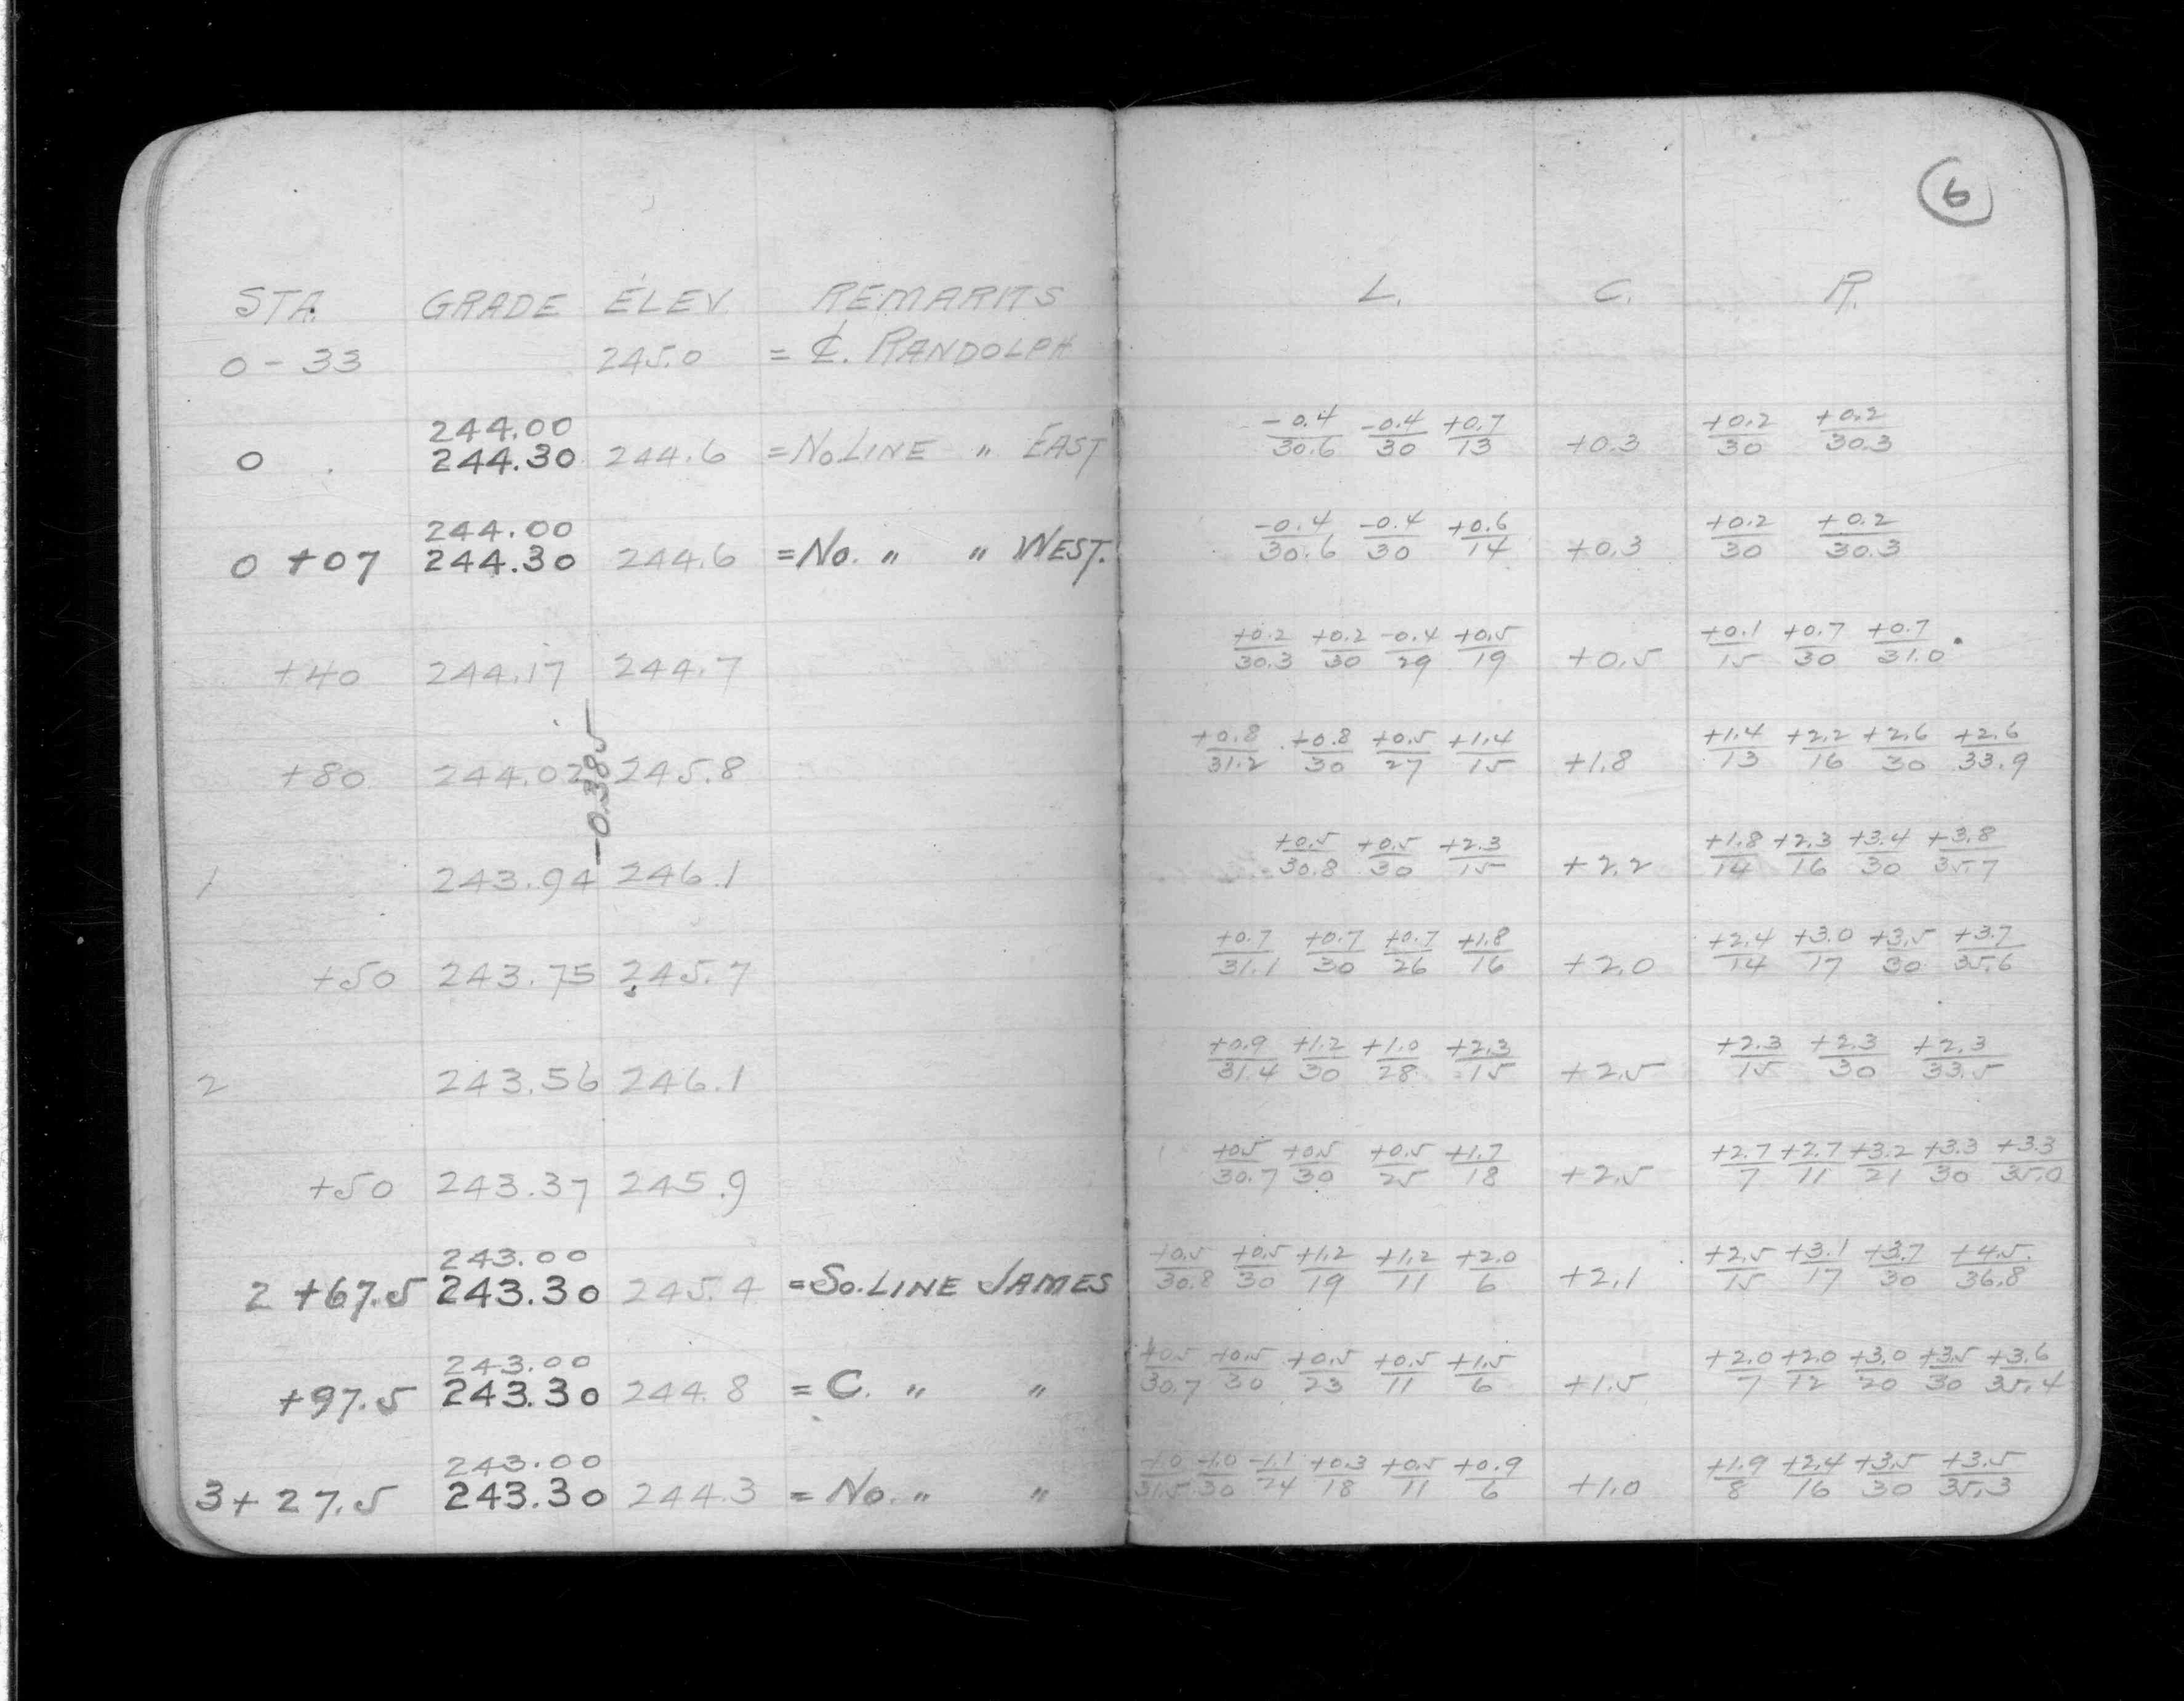 6
STA. GRADE ELEV. REMARKS L. C. R.
0 - 33 245.0 = ℄. RANDOLPH
244.00
0 244.30 244.6 = No LINE " EAST -0.4/30.6 -0.4/30 +0.7/13 +0.3 +0.2/30 +0.2/30.3
244.00
0 +07 244.30 244.6 = No. " " WEST. -0.4/30.6 -0.4/30 +0.6/14 +0.3 +0.2/30 +0.2/30.3
+40 244.17 244.7 +0.2/30.3 +0.2/30 -0.4/29 +0.5/19 +0.5 +0.1/15 +0.7/30 +0.7/31.0
-0.385
+80 244.02 245.8 +0.8/31.2 +0.8/30 +0.5/27 +1.4/15 +1.8 +1.4/13 +2.2/16 +2.6/30 +2.6/33.9
1 243.94 246.1 +0.5/30.8 +0.5/30 +2.3/15 +2.2 +1.8/14 +2.3/16 +3.4/30 +3.8/35.7
+50 243.75 245.7 +0.7/31.1 +0.7/30 +0.7/26 +1.8/16 +2.0 +2.4/14 +3.0/17 +3.5/30 +3.7/35.6
2 243.56 246.1 +0.9/31.4 +1.2/30 +1.0/28 +2.3/15 +2.5 +2.3/15 +2.3/30 +2.3/33.5
+50 243.37 245.9 +0.5/30.7 +0.5/30 +0.5/25 +1.7/18 +2.5 +2.7/7 +2.7/11 +3.2/21 +3.3/30 +3.3/35.0
243.00
2 +67.5 243.30 245.4 = So. LINE JAMES +0.5/30.8 +0.5/30 +1.2/19 +1.2/11 +2.0/6 +2.1 +2.5/15 +3.1/17 +3.7/30 +4.5/36.8
243.00
+97.5 243.30 244.8 = C. " " +0.5/30.7 +0.5/30 +0.5/23 +0.5/11 +1.5/6 +1.5 +2.0/7 +2.0/12 +3.0/20 +3.5/30 +3.6/35.4
243.00
3+27.5 243.30 244.3 = No. " " -1.0/31.5 -1.0/30 -1.1/24 +0.3/18 +0.5/11 +0.9/6 +1.0 +1.9/8 +2.4/16 +3.5/30 +3.5/35.3